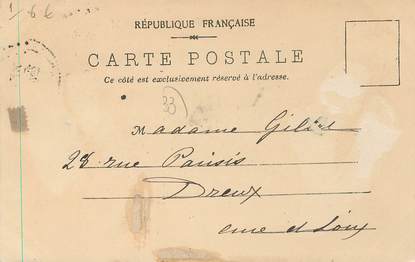 RÉPUBLIQUE FRANÇAISE
CARTE POSTALE
Ce côté est exclusivement réservé à l'adresse.
33
Madame
23 rue Parisis
Dreux
eure et Loir